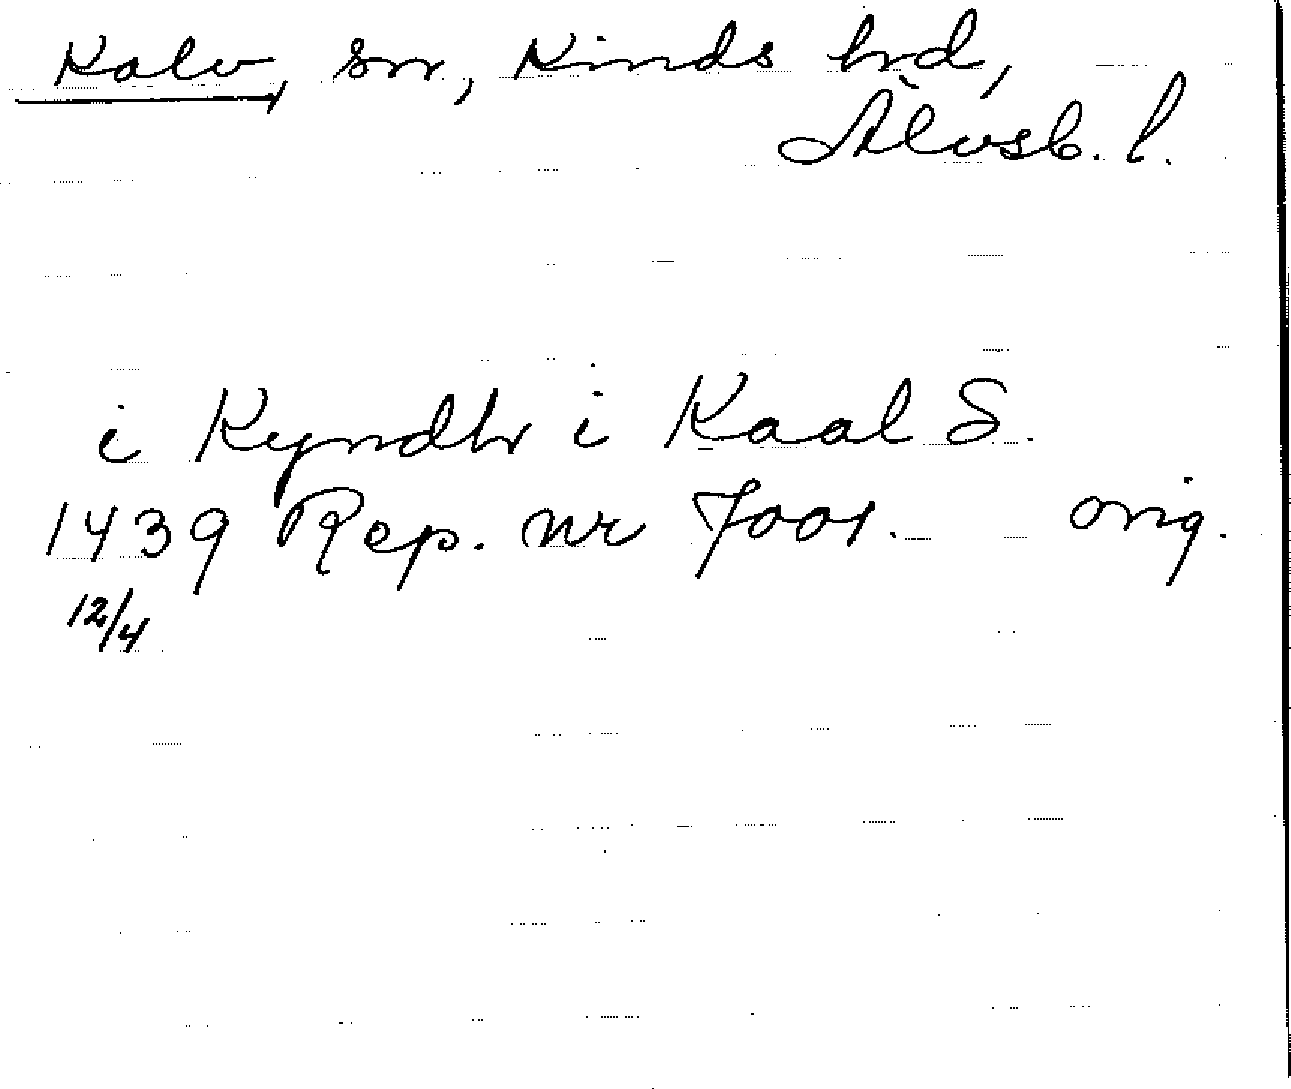 Kalv, sn, Kinds hrd,
Älvsb. l.
i Kyndhr i Kaal S.
1439 Rep. nr 7001. orig.
12/4